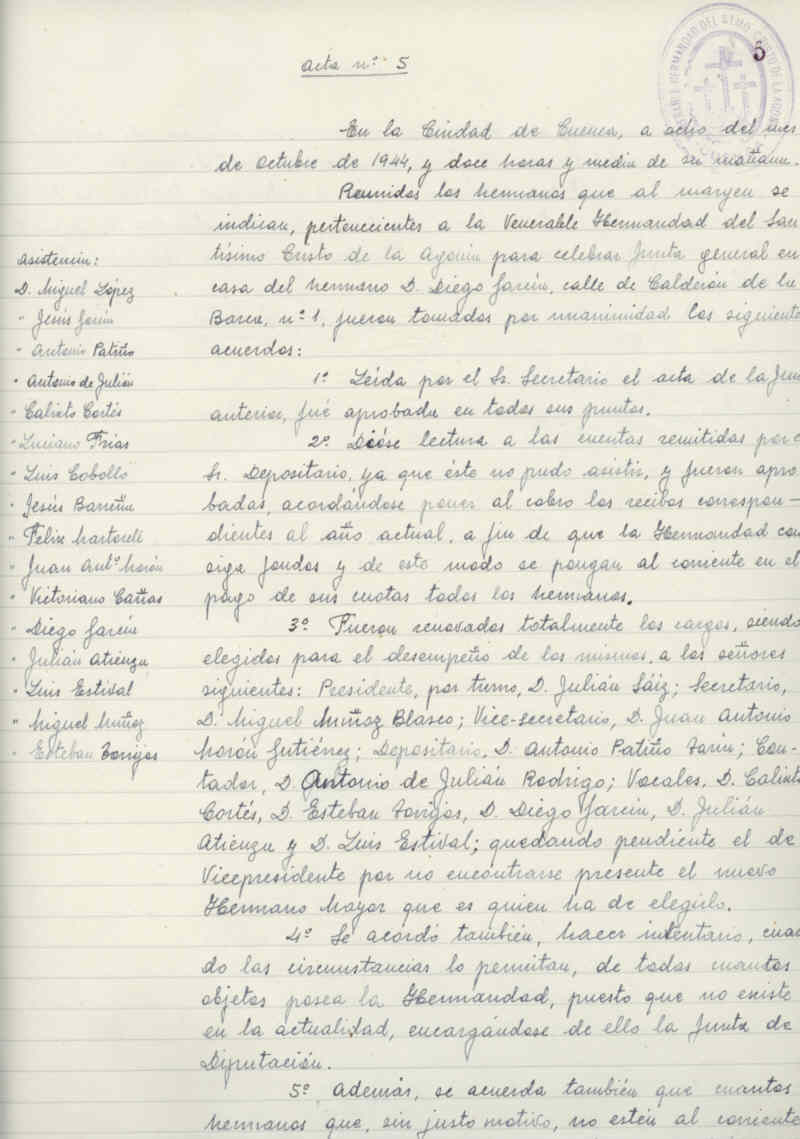 Acta nº 5
5
En la Ciudad de Cuenca, a ocho del mes
de Octubre de 1944, y doce horas y media de su mañana.
Reunidos los hermanos que al margen se
indican, pertenecientes a la Venerable Hermandad del San
tísimo Cristo de la Agonía para celebrar Junta general en
casa del hermano D. Diego García, calle de Calderón de la
Barca, nº 1, fueron tomados por unanimidad los siguiente
acuerdos:
1º Leída por el Sr. Secretario el acta de la Jun
anterior, fué aprobada en todos sus puntos.
2º Dióse lectura a las cuentas remitidas por e
Sr. Depositario, ya que éste no pudo asistir, y fueron apro
badas, acordándose poner al cobro los recibos correspon-
dientes al año actual, a fin de que la Hermandad con
siga fondos y de este modo se pongan al corriente en el
pago de sus cuotas todos los hermanos.
3º Fueron renovados totalmente los cargos, siendo
elegidos para el desempeño de los mismos, a los señores
siguientes: Presidente, por turno, D. Julián Sáiz; Secretario,
D. Miguel Muñoz Blasco; Vice-secretario, D. Juan Antonio
Morón Gutiérrez; Depositario, D. Antonio Patiño Jarín; Con-
tador, D. Antonio de Julián Rodrigo; Vocales, D. Calixto
Cortés, D. Esteban Torrijos, D. Diego García, D. Julián
Atienza y D. Luis Estival; quedando pendiente el de
Vicepresidente por no encontrarse presente el nuevo
Hermano Mayor que es quien ha de elegirlo.
4º Se acordó también, hacer inventario, cuan
do las circunstancias lo permitan, de todos cuantos
objetos posea la Hermandad, puesto que no existe
en la actualidad, encargándose de ello la Junta de
Diputación.
5º Además, se acuerda también que cuantos
hermanos que, sin justo motivo, no estén al corriente
Asistencia:
D. Miguel López
" Jesús
" Antonio Patiño
" Antonio de Julián
" Calixto Cortés
" Luciano Frías
" Luis Cobollo
" Jesús
" Felix
" Juan Antº Morón
" Victoriano Cañas
" Diego García
" Julián Atienza
" Luis Estival
" Miguel Muñoz
" Esteban Torrijos
HERMANDAD DEL STMO. CRISTO DE LA AGONIA